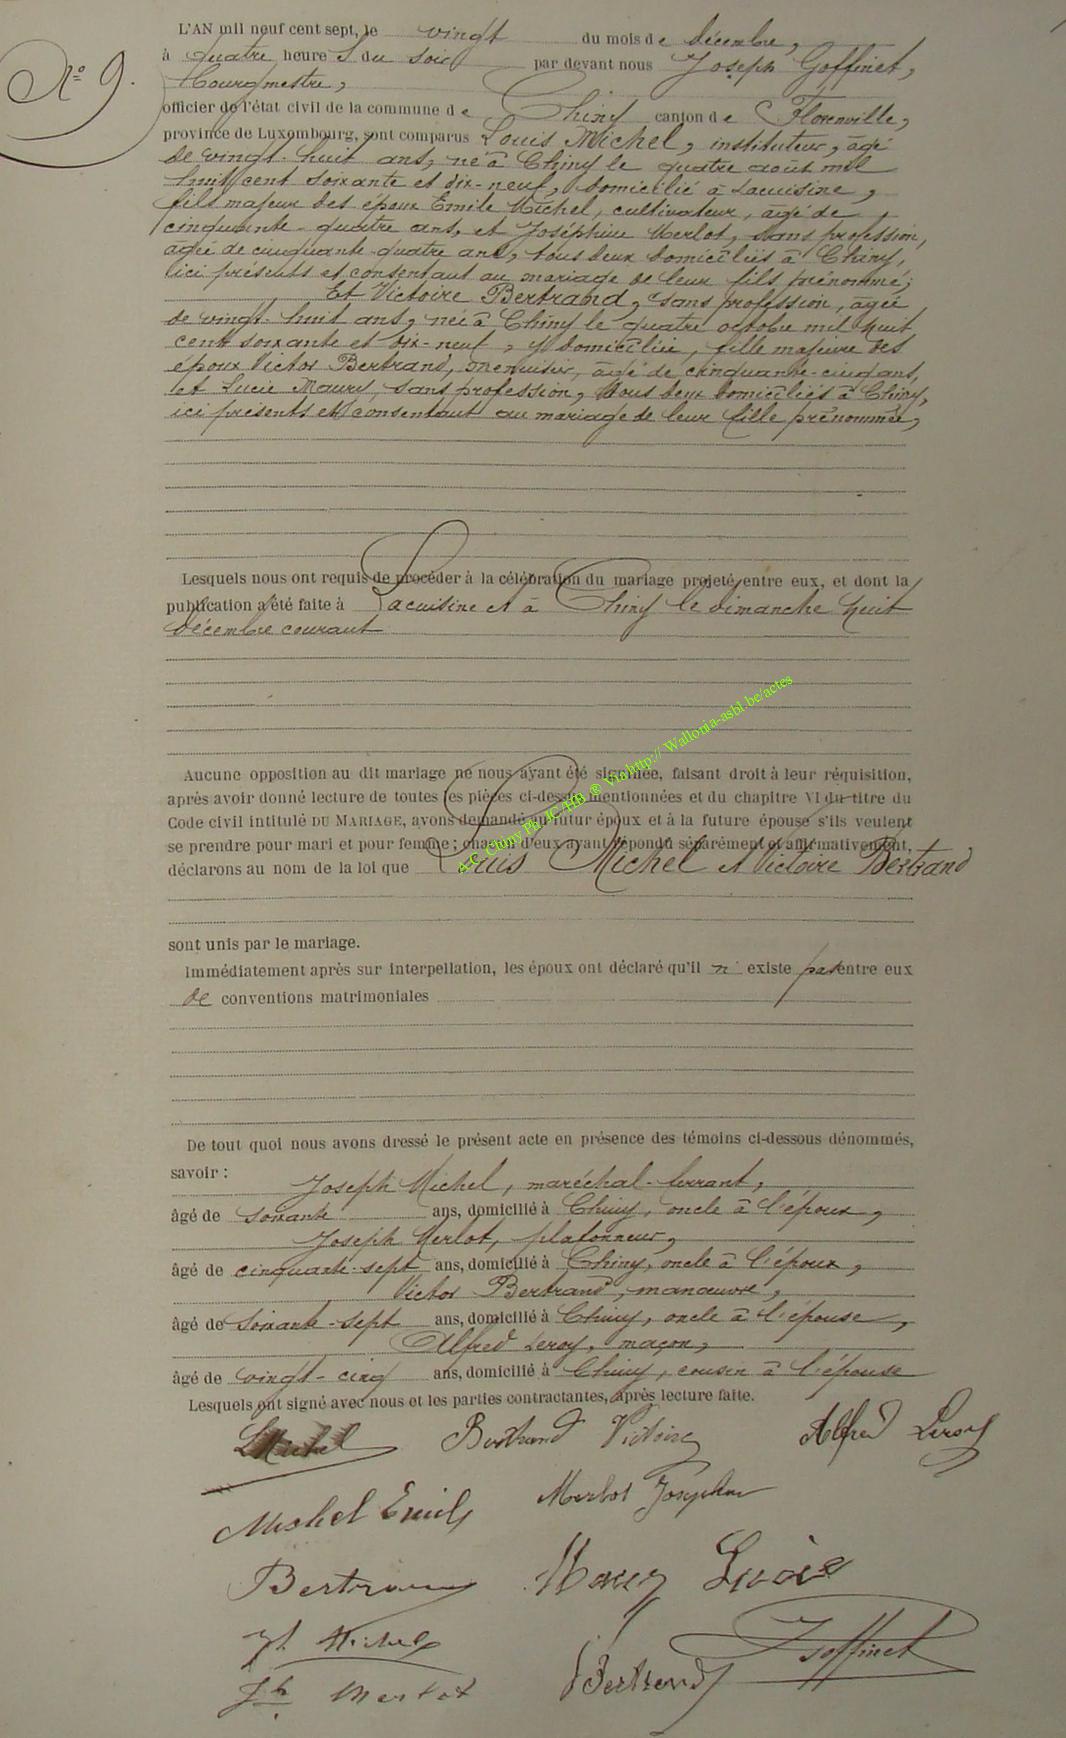 N° 9.
L'AN mil neuf cent sept, le vingt du mois de décembre,
à quatre heures du soir par devant nous Joseph Goffinet,
bourgmestre,
officier de l'état civil de la commune de Chiny canton de Florenville,
province de Luxembourg, sont comparus Louis Michel, instituteur, âgé
de vingt-huit ans, né à Chiny le quatre août mil
huit cent soixante et dix-neuf, domicilié à Lacuisine,
fils majeur des époux Emile Michel, cultivateur, âgé de
cinquante-quatre ans, et Joséphine Merlot, sans profession,
âgée de cinquante-quatre ans, tous deux domiciliés à Chiny,
ici présents et consentant au mariage de leur fils prénommé;
Et Victoire Bertrand, sans profession, âgée
de vingt-huit ans, née à Chiny le quatre octobre mil huit
cent soixante et dix-neuf, y domiciliée, fille majeure des
époux Victor Bertrand, menuisier, âgé de cinquante-cinq ans,
et Lucie Maury, sans profession, tous deux domiciliés à Chiny,
ici présents et consentant au mariage de leur fille prénommée,
Lesquels nous ont requis de procéder à la célébration du mariage projeté entre eux, et dont la
publication a été faite à Lacuisine et à Chiny le dimanche huit
décembre courant
Aucune opposition au dit mariage ne nous ayant été signifiée, faisant droit à leur réquisition,
après avoir donné lecture de toutes les pièces ci-dessus mentionnées et du chapitre VI du titre du
Code civil intitulé DU MARIAGE, avons demandé au futur époux et à la future épouse s'ils veulent
se prendre pour mari et pour femme; chacun d'eux ayant répondu séparément et affirmativement,
déclarons au nom de la loi que Louis Michel et Victoire Bertrand
sont unis par le mariage.
Immédiatement après sur interpellation, les époux ont déclaré qu'il n' existe pas entre eux
de conventions matrimoniales
De tout quoi nous avons dressé le présent acte en présence des témoins ci-dessous dénommés,
savoir :
Joseph Michel, maréchal-ferrant,
âgé de soixante ans, domicilié à Chiny, oncle à l'époux,
Joseph Merlot, plafonneur,
âgé de cinquante-sept ans, domicilié à Chiny, oncle à l'époux,
Victor Bertrand, manœuvre,
âgé de soixante-sept ans, domicilié à Chiny, oncle à l'épouse,
Alfred Leroy, maçon,
âgé de vingt-cinq ans, domicilié à Chiny, cousin à l'épouse
Lesquels ont signé avec nous et les parties contractantes, après lecture faite.
LMichel Bertrand Victoire Alfred Leroy
Michel Emile Merlot Joséphine
Bertrand Maury Lucie
Jh Michel Bertrand JGoffinet
Jh Merlot
A.C. Chiny Ph. JC/HB ® Via http:// Wallonia-asbl.be/actes